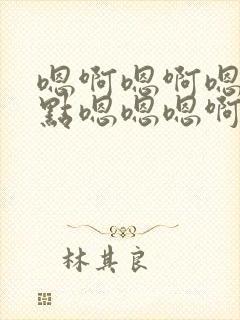 嗯啊嗯啊嗯
點嗯嗯嗯啊
林其良